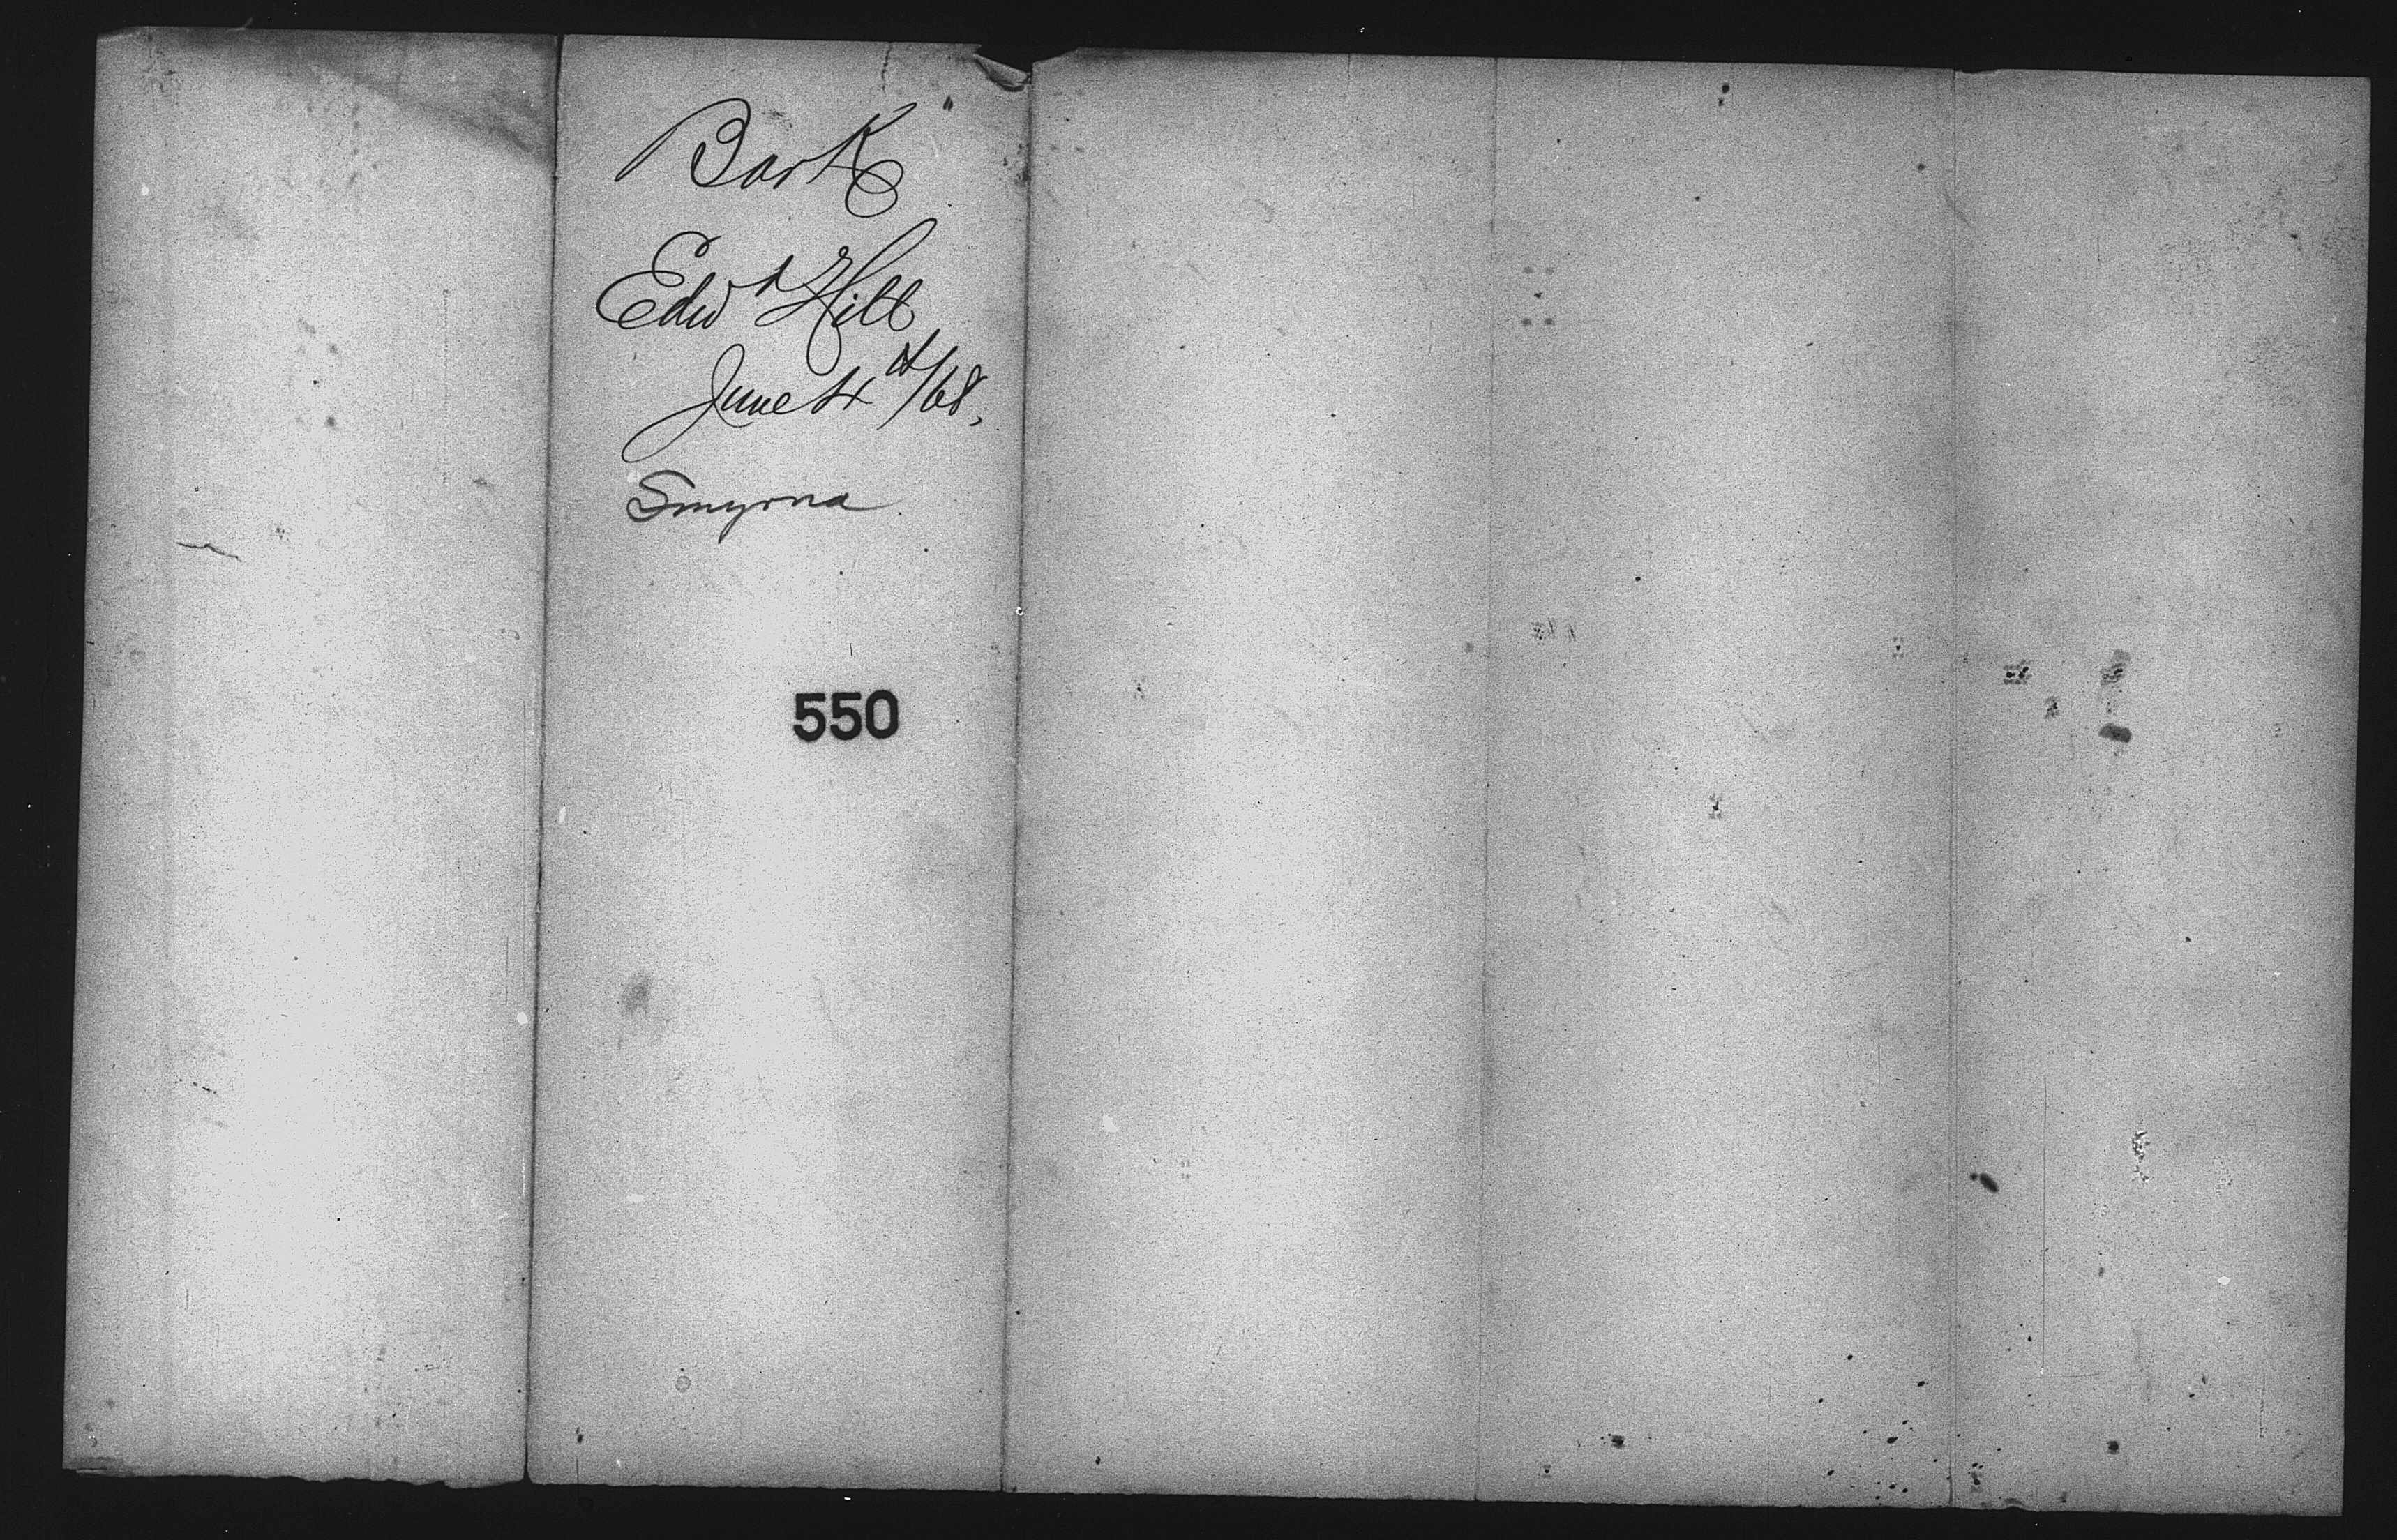 Bark
Edwd Hill
June 4th/68,
Smyrna
550